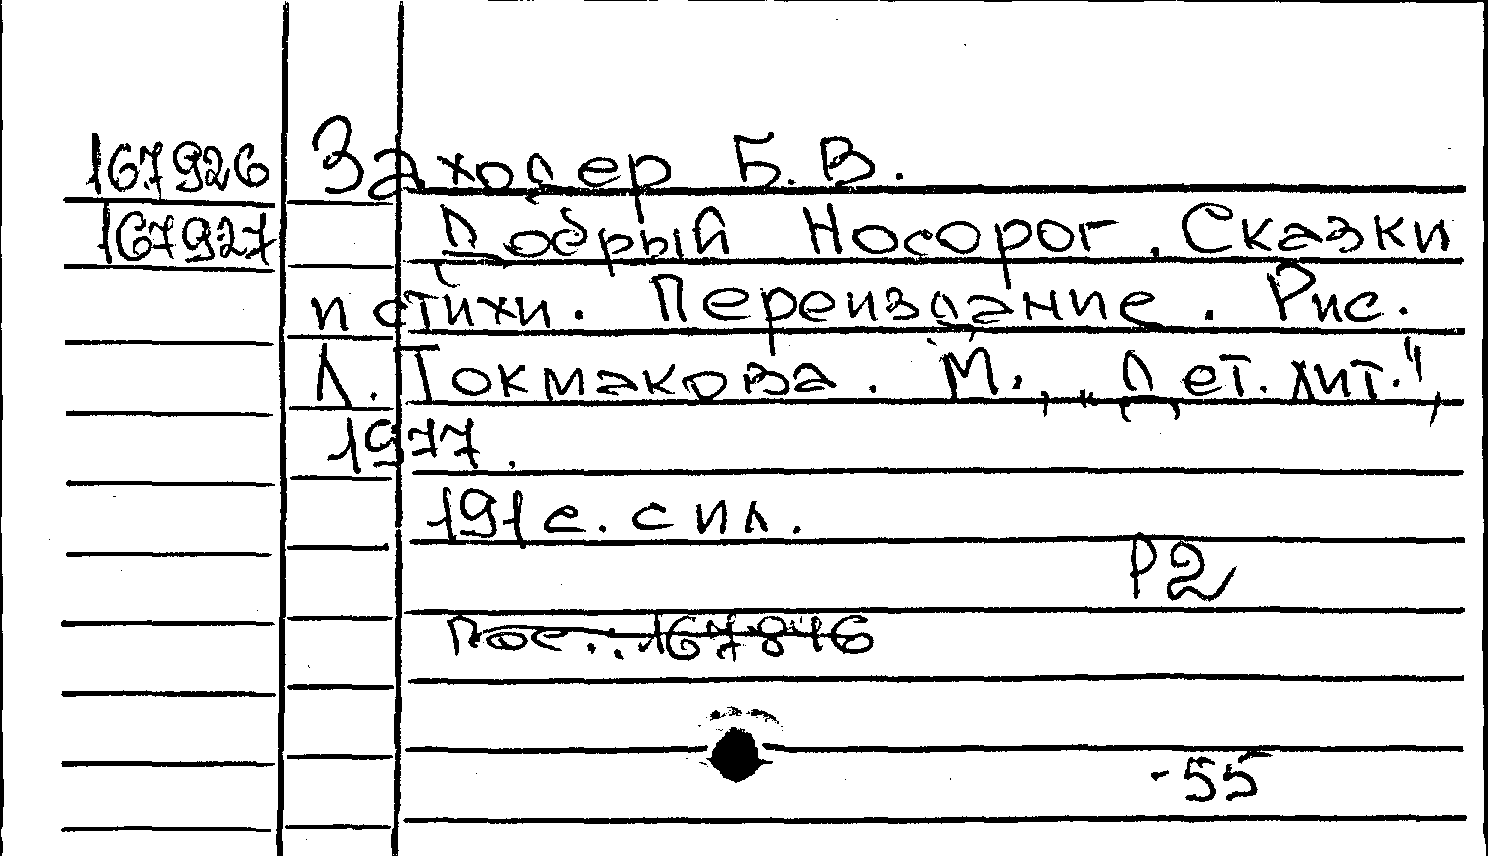 167926 Заходер Б.В.
167927 Добрый Носорог. Сказки
и стихи. Переиздание. Рис.
Л. Токмакова. М., „Дет. лит.",
1977.
191 с. с ил.
Р2
-55